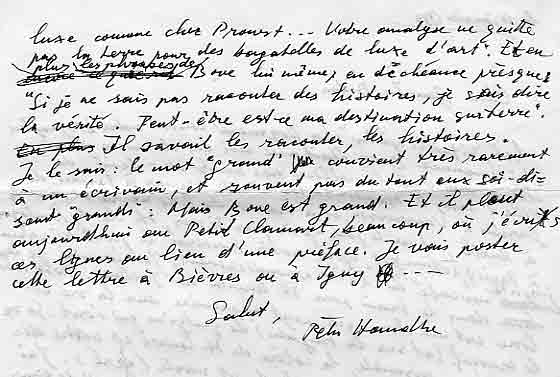 luxe comme chez Proust... Votre analyse ne quitte
pas la terre pour des bagatelles de luxe d'art". Et en
plus les phrases de Bove lui même, en déchéance presque
"Si je ne sais pas raconter des histoires, je sais dire
la vérité. Peut-être est-ce ma destination sur terre".
Il savait les raconter, les histoires.
Je le sais: le mot "grand" convient très rarement
à un écrivain, et souvent pas du tout aux soi-di-
sant "grands": Mais Bove est grand. Et il pleut
aujourdhui au Petit Clamart, beaucoup, où j'écris
ces lignes au lieu d'une préface. Je vais poster
cette lettre à Bièvres ou à Igny ---
Salut,